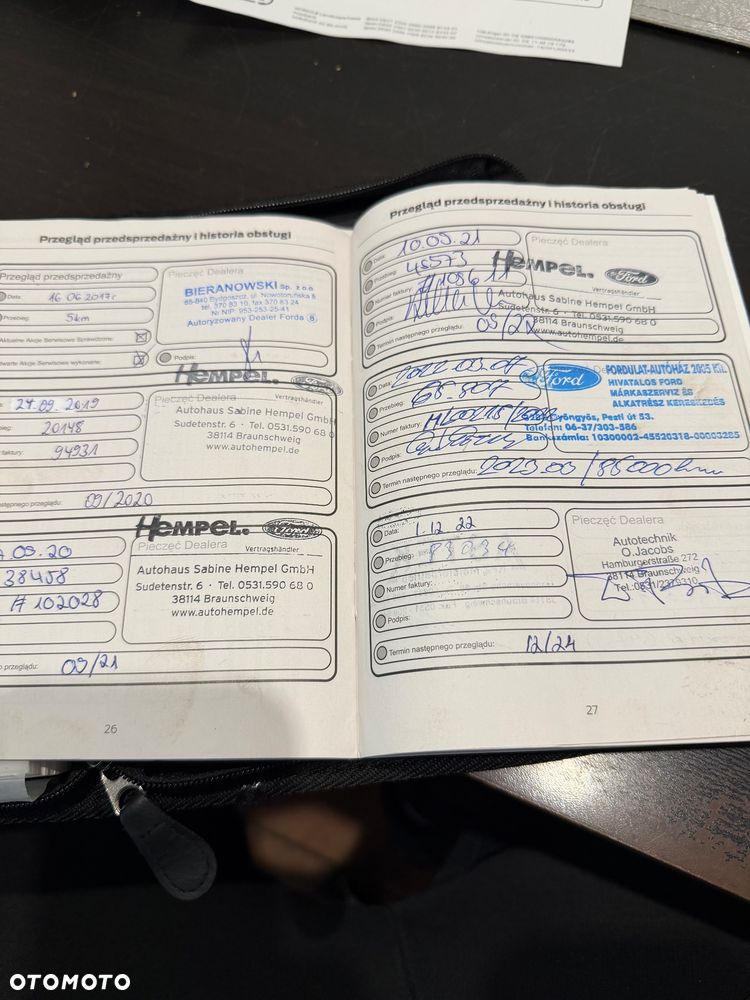 Przegląd przedsprzedażny i historia obsługi
Przegląd przedsprzedażny
Data: 16 06 2017r
Przebieg: 5km
Aktualne Akcje Serwisowe Sprawdzone:
Otwarte Akcje Serwisowe wykonane:
Pieczęć Dealera
BIERANOWSKI Sp. z o.o.
85-840 Bydgoszcz, ul. Nowotoruńska 8
tel. 570 83 10, fax 370 83 24
Nr NIP: 953-253-25-41
Autoryzowany Dealer Forda
Podpis:
27.09.2019
20148
94931
następnego przeglądu: 09/2020
HEMPEL. Ford
Vertragshändler
Pieczęć Dealera
Autohaus Sabine Hempel GmbH
Sudetenstr. 6 · Tel. 0531.590 68 0
38114 Braunschweig
www.autohempel.de
.09.20
38458
# 102028
przeglądu: 09/21
HEMPEL. Ford
Pieczęć Dealera
Vertragshändler
Autohaus Sabine Hempel GmbH
Sudetenstr. 6 · Tel. 0531.590 68 0
38114 Braunschweig
www.autohempel.de
26
Przegląd przedsprzedażny i historia obsługi
Data: 10.09.21
Przebieg: 45573
Numer faktury:
Podpis:
Termin następnego przeglądu: 09/22
Pieczęć Dealera
HEMPEL. Ford
Vertragshändler
Autohaus Sabine Hempel GmbH
Sudetenstr. 6 · Tel. 0531.590 68 0
38114 Braunschweig
www.autohempel.de
Data: 2022.03.07
Przebieg: 68.507
Numer faktury:
Podpis:
Termin następnego przeglądu: /85000km
Ford
FORDULAT-AUTÓHÁZ 2005 Kft.
HIVATALOS FORD
MÁRKASZERVIZ ÉS
ALKATRÉSZ KERESKEDÉS
Gyöngyös, Pesti út 53.
Telefon: 06-37/303-586
Bankszámla: 10300002-45520318-00003285
Data: 1.12.22
Przebieg:
Numer faktury:
Podpis:
Termin następnego przeglądu: 12/24
Pieczęć Dealera
Autotechnik
O.Jacobs
Hamburgerstraße 272
38114 Braunschweig
27
OTOMOTO